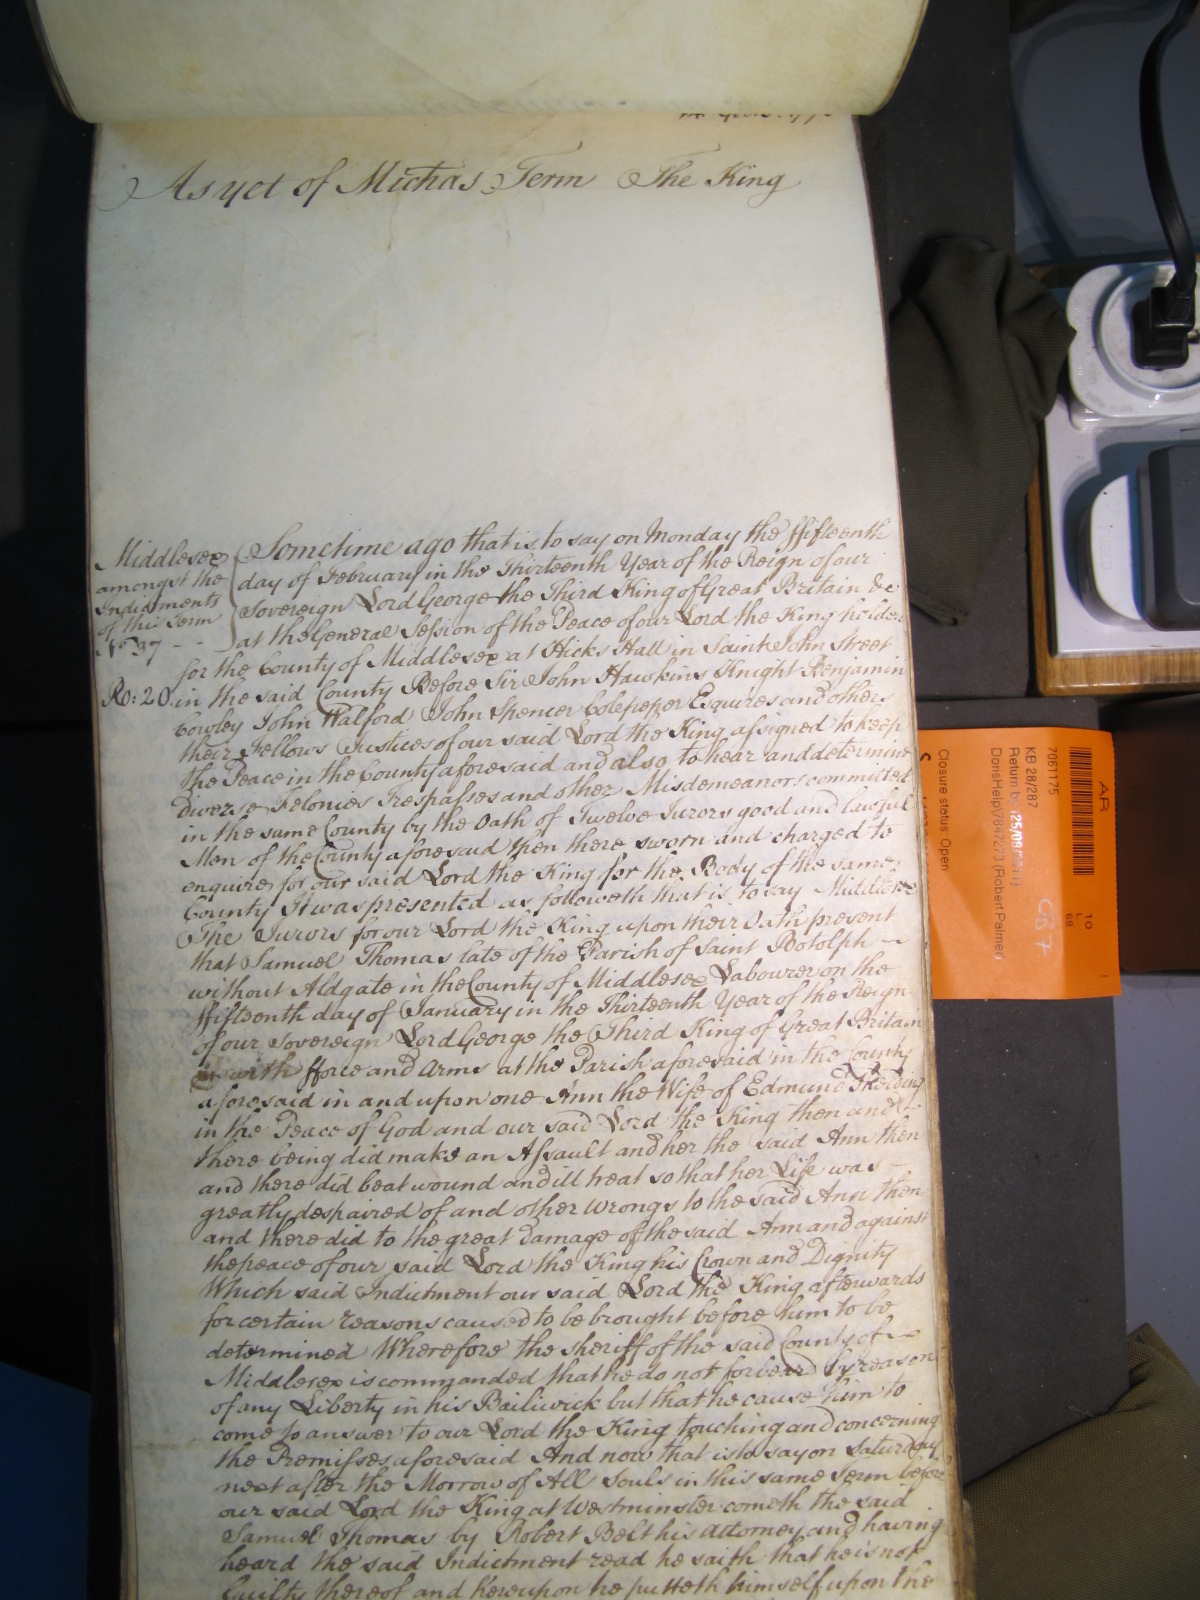 As yet of Michas Term The King
Middlesex
amongst the
Indictments
of this Term
No 37
Ro: 20
Sometime ago that is to say on Monday the ffifteenth
day of February in the Thirteenth Year of the Reign of our
Sovereign Lord George the Third King of Great Britain &c
at the General Session of the Peace of our Lord the King holden
for the County of Middlesex at Hicks Hall in Saint John Street
in the said County Before Sir John Hawkins Knight Benjamin
Cowley John Walford John Spencer Colepeper Esquires and others
their Fellows Justices of our said Lord the King assigned to keep
the Peace in the County aforesaid and also to hear and determine
diverse Felonies Trespasses and other Misdemeanors committed
in the same County by the Oath of Twelve Jurors good and lawful
Men of the County aforesaid then there sworn and charged to
enquire for our said Lord the King for the Body of the same
County It was presented as followeth that is to say Middlesex
The Jurors for our Lord the King upon their Oath present
that Samuel Thomas late of the Parish of Saint Botolph
without Aldgate in the County of Middlesex Labourer on the
ffifteenth day of January in the Thirteenth Year of the Reign
of our Sovereign Lord George the Third King of Great Britain
with fforce and Arms at the Parish aforesaid in the County
aforesaid in and upon one Ann the Wife of Edmund
in the Peace of God and our said Lord the King then and
there being did make an Assault and her the said Ann then
and there did beat wound and ill treat so that her Life was
greatly despaired of and other Wrongs to the said Ann then
and there did to the great damage of the said Ann and against
the peace of our said Lord the King his Crown and Dignity
Which said Indictment our said Lord the King afterwards
for certain reasons caused to be brought before him to be
determined Wherefore the Sheriff of the said County of
Middlesex is commanded that he do not forbear by reason
of any Liberty in his Bailiwick but that he cause him to
come to answer to our Lord the King touching and concerning
the Premisses aforesaid And now that is to say on Saturday
next after the Morrow of All Souls in this same Term before
our said Lord the King at Westminster cometh the said
Samuel Thomas by Robert Belt his Attorney and having
heard the said Indictment read he saith that he is not
Guilty thereof and hereupon he putteth himself upon the
AR
7061175
KB 28/287
Return by (25/08/
DorisHelp\7847273 (Robert Palmer)
Closure status: Open
10
L
68